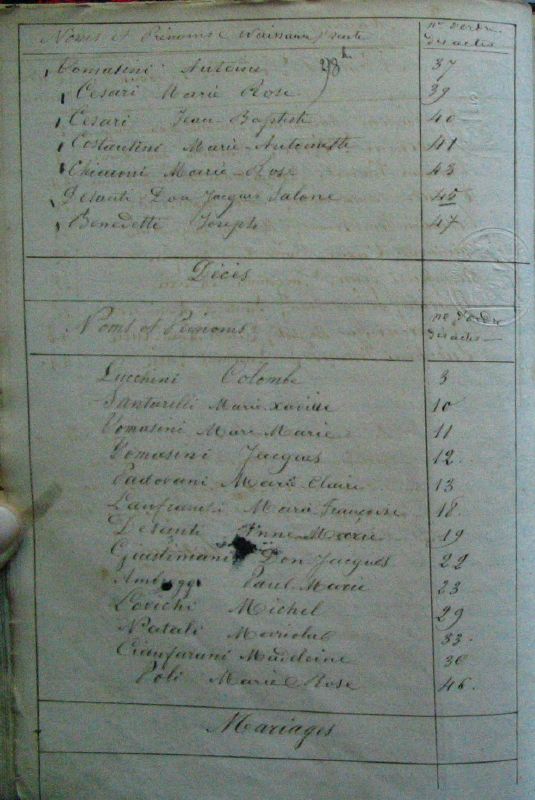 Noms et Prénoms Naissance Suite n° d'ordre des actes
Tomasini Antoine 37
Cesari Marie Rose 39
Cesari Jean Baptiste 40
Costantini Marie Antoinette 41
Marie Rose 43
Desanti Don Jacques 45
Benedetti Joseph 47
Décès
Noms et Prénoms n° d'ordre des actes
Lucchini Colombe 3
Santarelli Marie Xavière 10
Tomasini Marc Marie 11
Tomasini Jacques 12.
Padovani Marie Claire 13
Lanfranchi Marie Françoise 18.
Desanti Anne Marie 19
Giustiniani Don Jacques 22
Paul Marie 23
Lovichi Michel 29
Natali 33.
Cianfarani Madeleine 36
Poli Marie Rose 46.
Mariages